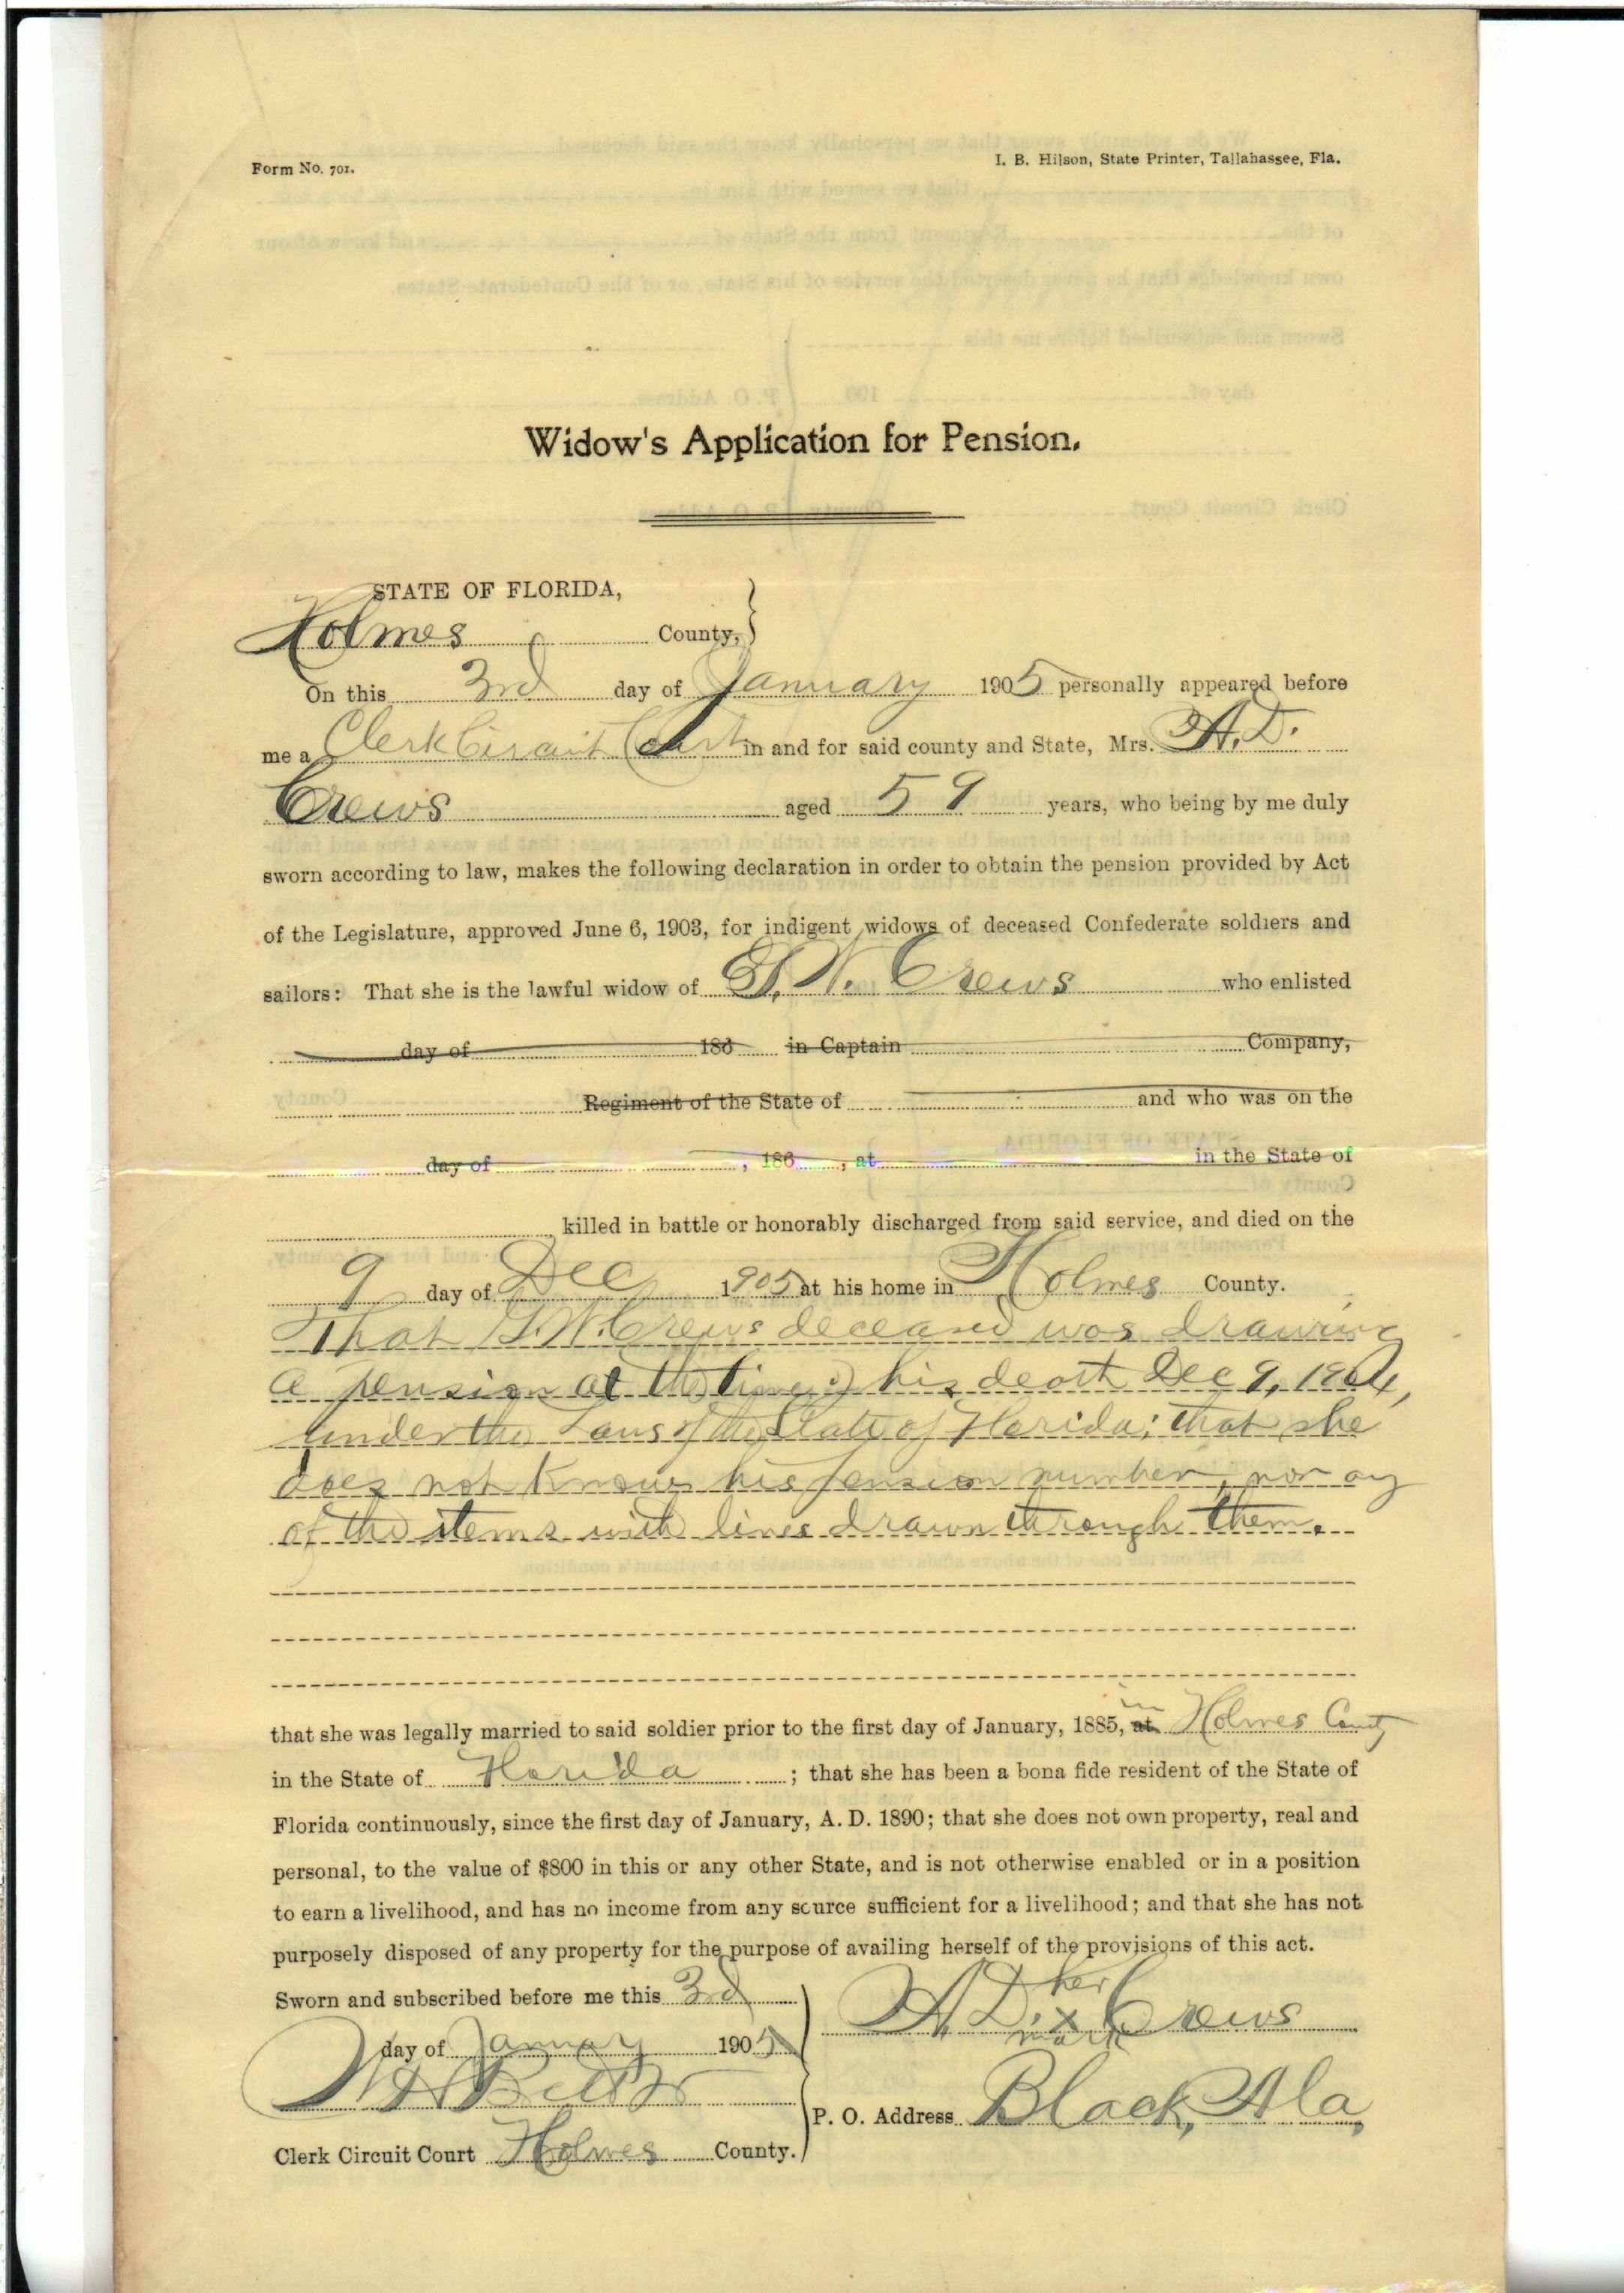 Form No. 701.
I. B. Hilson, State Printer, Tallahassee, Fla.
Widow's Application for Pension.
STATE OF FLORIDA,
Holmes County,
On this 3rd day of January 1905 personally appeared before
me a Clerk Circuit Court in and for said county and State, Mrs. A. D.
Crews aged 59 years, who being by me duly
sworn according to law, makes the following declaration in order to obtain the pension provided by Act
of the Legislature, approved June 6, 1903, for indigent widows of deceased Confederate soldiers and
sailors: That she is the lawful widow of G. W. Crews who enlisted
day of 186 in Captain Company,
Regiment of the State of and who was on the
day of , 186 , at in the State of
, killed in battle or honorably discharged from said service, and died on the
9 day of Dec 1905 at his home in Holmes County.
That G. W. Crews deceased was drawing
a pension at the time of his death Dec 9, 1904,
under the Laws of the State of Florida; that she
does not know his pension number, nor any
of the items with lines drawn through them.
that she was legally married to said soldier prior to the first day of January, 1885, at in Holmes County
in the State of Florida ; that she has been a bona fide resident of the State of
Florida continuously, since the first day of January, A. D. 1890; that she does not own property, real and
personal, to the value of $800 in this or any other State, and is not otherwise enabled or in a position
to earn a livelihood, and has no income from any source sufficient for a livelihood; and that she has not
purposely disposed of any property for the purpose of availing herself of the provisions of this act.
Sworn and subscribed before me this 3rd
day of January 1905
Clerk Circuit Court Holmes County.
A. D. her x mark Crews
P. O. Address Black, Ala,